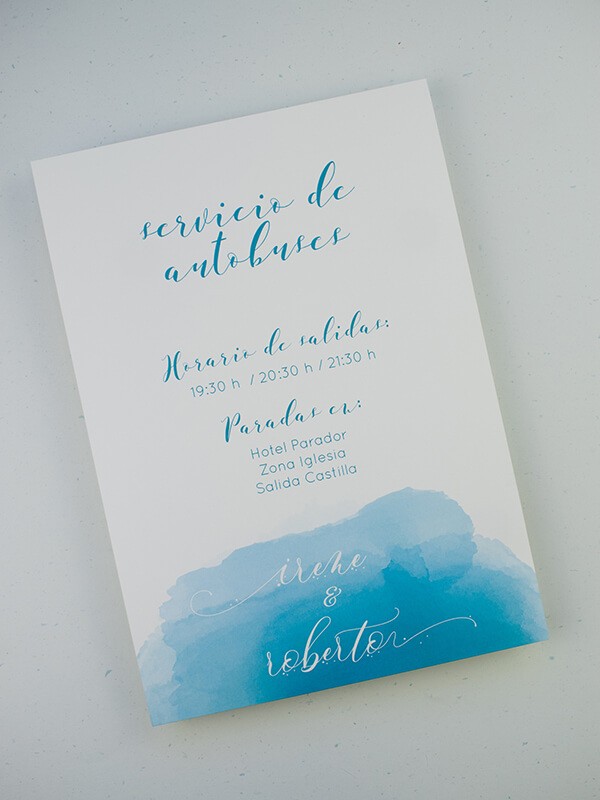 servicio de
autobuses
Horario de salidas:
19:30 h / 20:30 h / 21:30 h
Paradas en:
Hotel Parador
Zona Iglesia
Salida Castilla
irene
&
roberto